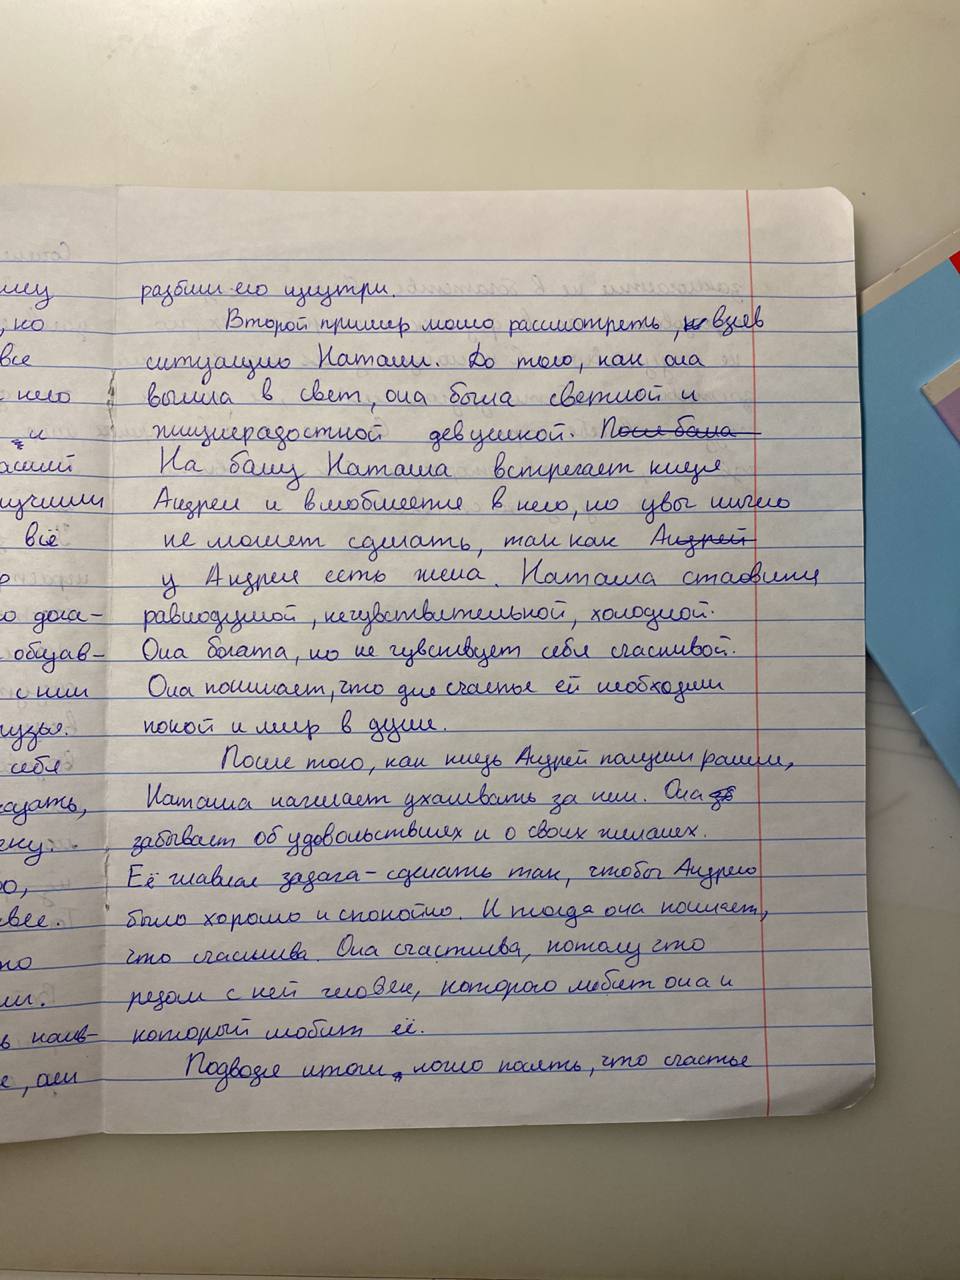 разбили его изнутри.
Второй пример можно рассмотреть, взяв
ситуацию Наташи. До того, как она
вышла в свет, она была светлой и
жизнерадостной девушкой. После бала
На балу Наташа встречает князя
Андрея и влюбляется в него, но увы ничего
не может сделать, так как Андрей
у Андрея есть жена. Наташа становится
равнодушной, нечувствительной, холодной.
Она богата, но не чувствует себя счастливой.
Она понимает, что для счастья ей необходим
покой и мир в душе.
После того, как князь Андрей получил ранение,
Наташа начинает ухаживать за ним. Она
забывает об удовольствиях и о своих желаниях.
Её главная задача - сделать так, чтобы Андрею
было хорошо и спокойно. И тогда она понимает,
что счастлива. Она счастлива, потому что
рядом с ней человек, которого любит она и
который любит её.
Подводя итоги, можно понять, что счастье
, но
все
него
и
всё
о дога-
обзав-
с ним
себя
казать,